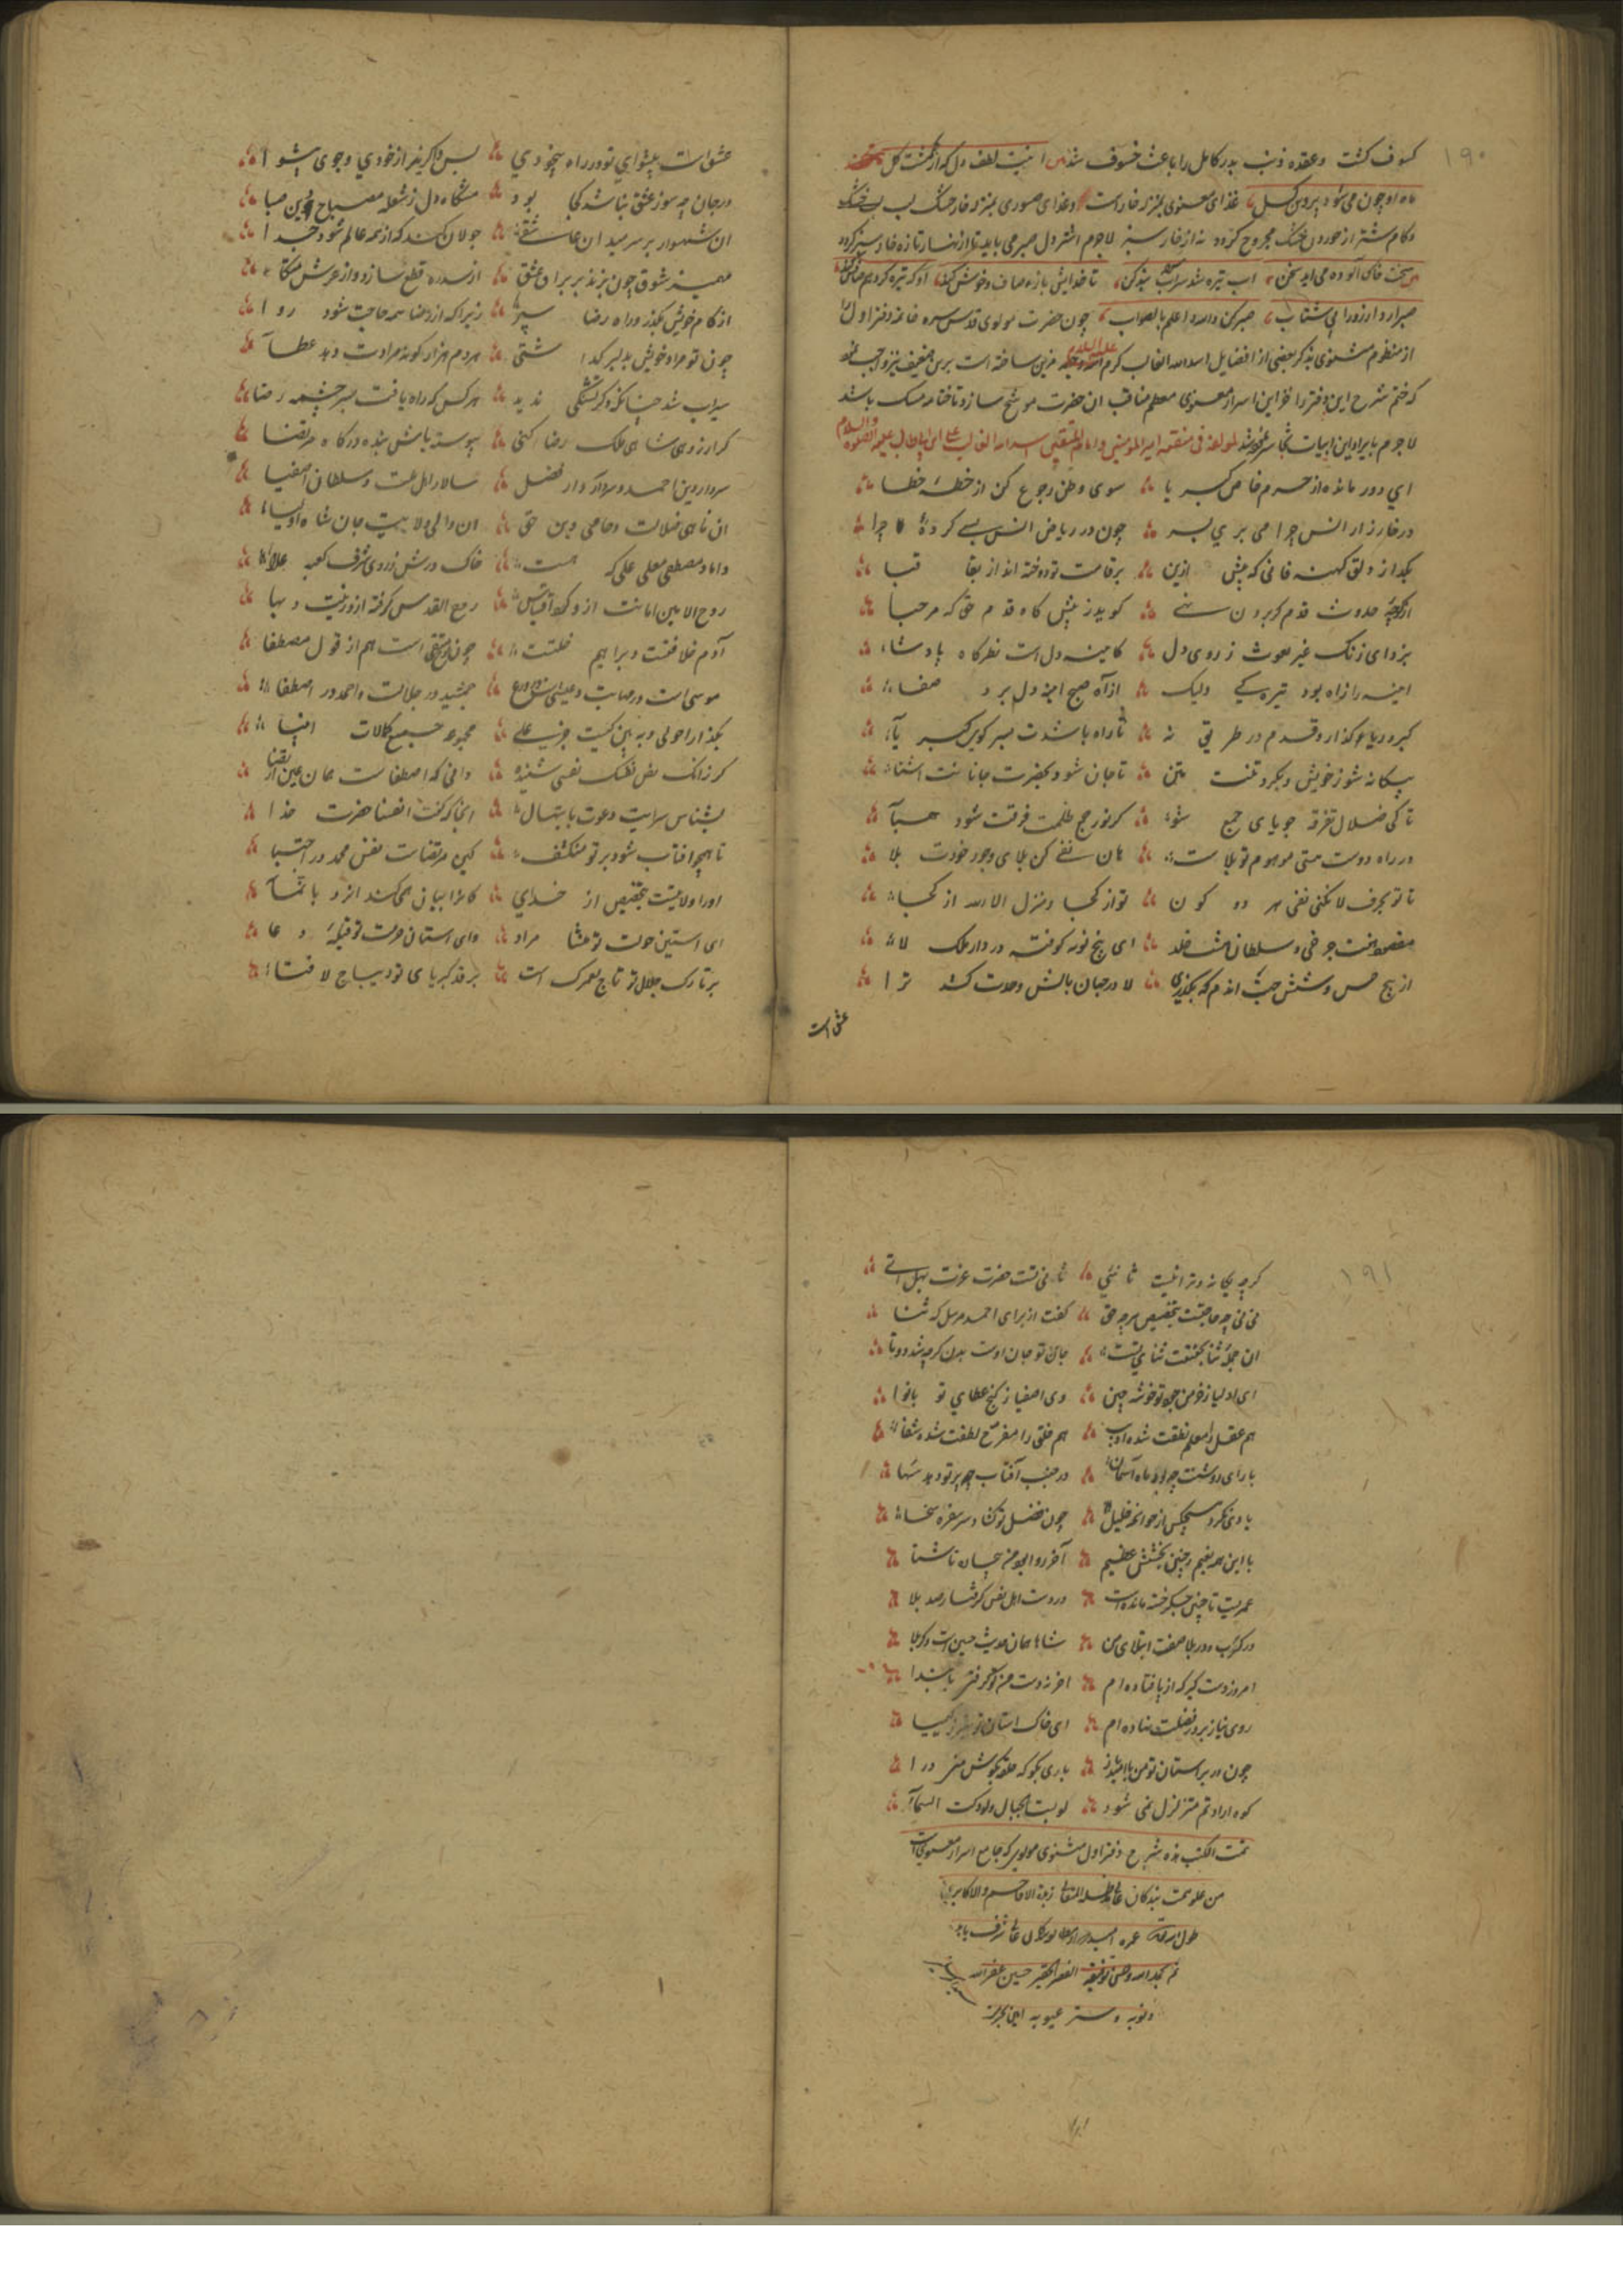 ۱۹۰
کسوف کشت و عقده ذنب بدر کامل را باعث خسوف شد اینت لطف دل که از یکمشت کل
ماه او چون می‌شود پروین کسل غذای معنوی بمنزله خار است وغذای صوری بمنزله خار خشک لب
وکام شتر از خوردن خشک مجروح کردد نه از خار سبز لاجرم اشتر دل صبر می باید تا از تازه خار سبز کردد
سخت خاک آلوده می اید سخن اب تیره شد سر چه بند کن تا خدایش باز صاف وخوش کند او که تیره کرد هم صافش کند
صبر ارد ارزو را نی شتاب صبر کن والله اعلم بالصواب چون حضرت مولوی قدس سره خاتمه دفتر اول را
از منظوم مثنوی بذکر بعضی از افضایل اسد الله الغالب کرم الله وجهه مزین ساخته است برین ضعیف نیز واجب نمود
که ختم شرح این دفتر را مناقب ان حضرت موشح سازد تا ختامه مسک باشد
لاجرم بایراد این ابیات لمولفه فی منقبة امیر المومنین وامام المتقین اسد الله الغالب علی ابن ابی طالب علیه الصلوه والسلام
ای دور مانده از حرم خاص کبریا سوی وطن رجوع کن از خطهٔ خطا
در خارزار انس چرا می بری بسر چون در ریاض انس بسی کردهٔ چرا
بکذار دلق کهنه فانی که پیش ازین بر قامت تو دوخته اند از بقا قبا
از کوچهٔ حدوث قدم کر برون نهی کوید ز پیش کاه قدم حق که مرحبا
بزدای زنک غیر بعون ز روی دل کایینه دل است نظرکاه پادشاه
اینه را ز اه بود تیره کی ولیک از آه صبح اینه دل برد صفا
کبر و ریا کذار و قدم در طریق نه تا راه باشدت بسر کوی کبریا
بیکانه شو ز خویش و مکرد تنت متن تا جان شود بحضرت جانانت اشنا
تا کی ضلال تفرقه جویای جمع شو کز نور جمع ظلمت فرقت شود هبا
در راه دوست هستی موهوم تو بلاست هان نفی کن بلای وجود خودت بلا
تا تو بحرف لا نکنی نفی هر دو کون تو از کجا ومنزل الا الله از کجا
مقصود هفت چرخی و سلطان هشت خلد ای پنج نوبه کوفته در دار ملک لا
از پنج حس وشش جهت اندم که بکذری لا در جهان بالش وحدت کشد ترا
عشق است
عشق است پیشوای تو در راه بیخودی پس واکریز از خودی وجوی پیشوا
در جان چو سوز عشق نباشد کجا بود مشکاه دل ز شعله مصباح دین صبا
ان شهسوار بر سر میدان عاشقی جولان کند که از همه عالم شود جدا
مهمیز شوق چون بزند بر براق عشق از سدره قطع سازد واز عرش متکا
از کام خویش بکذر و راه رضا سپر زیرا که از رضا همه حاجت شود روا
چون تو مراد خویش بدلبر کذاشتی هر دم هزار کونه مرادت دهد عطا
سیراب شد چنانکه دکر تشنکی ندید هر کس که راه یافت بسر چشمه رضا
کر ارزوی شاهی ملک رضا کنی پیوسته باش بنده درکاه مرتضا
سردار دین احمد و سردار کوار فضل سالار اهل عت وسلطان اصفیا
ان ناهی ضلالت وحامی دین حق ان والی ولایت جان شاه اولیا
داماد مصطفی معلی علی که هست خاک درش ز روی شرف کعبه علا
روح الامین امانت از و کرد اقتباس روح القدس کرفته ازو زینت و بها
آدم خلافتست وبراهیم خلتست چون متفق است هم از قول مصطفا
موسی است در مهابت وعیسی جمشید در جلالت واحمد در اصطفا
بکذار احولی و به بین کیست جز علی مجموعه جمیع کمالات انبیا
کر زانکه نص نفسک نفسی شنیدهٔ دانی که اصطفاست همان عین ارتضا
بشناس سرایت دعوت بابتهال انجا که کفت انفسنا حضرت خدا
تا همچو افتاب شود بر تو منکشف کین مرتضاست نفس محمد در اجتبا
او را ولایتیست بتخصیص از خدای کانرا بیان همی کند ایزد بانما
ای استین دولت تو منشا مراد وای استان حرمت تو قبلهٔ دعا
بر تارک جلال تو تاج لعمرک است بر قد کبریای تو دیباج لافتا
۱۹۱
کر چه یکانه وترا نیست ثانیی ثانی تست حضرت عزت بهل اتی
نی نی چه حاجتست بتخصیص هر چه حق کفت از برای احمد مرسل که ثنا
ان جمله ثنا بحقیقت ثنای تست جان تو جان اوست بدن کر چه شد دوتا
ای اولیا ز خرمن جود تو خوشه چین وی اصفیا ز کنج عطای تو با نوا
هم عقل را معلم نطقت شده ادیب هم خلق را مفرح لطفت شده شفا
با رای روشنت چه بود ماه آسمان در جنب آفتاب چه پرتو دهد سها
یادی نکرد هیچکس از خوان خلیل چون فضل تو کشاد سر سفره سخا
با این همه نعیم و چنین بخشش عظیم آخر روا بود من چنان ناشتا
عمریست تا چنین جکر خسته مانده است در دست اهل نفس کرفتار صد بلا
در کرب ودر بلا صفت ابتلای من شاها همان حدیث حسین است وکربلا
امروز دست کیر که از پا فتاده ام اخر نه دست من تو کرفتی بابتدا
روی نیاز بر در فضلت نهاده ام ای خاک استان تو بهتر ز کیمیا
چون در بر استان تو من باری بکو که حلقه بکوش منی درا
کوه ارادتم متزلزل نمی شود لو بست الجبال ولو دکت السما
تمت الکتب هذه شرح دفتر اول مثنوی مولوی که جامع اسرار معنویست
من علو همت بندکان زبدة الاعاظم والاکابر
طول الله عمره
تم بحمد الله وحسن توفیقه الفقیر الحقیر حسین غفر الله
ذنوبه وستر عیوبه